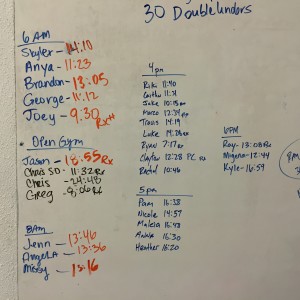 30 Double Unders
6 AM
Skyler - 14:10
Anya - 11:23
Brandon - 13:05
George - 11:12
Joey - 9:30
Rx+
Open Gym
Jason - 18:55 Rx
Chris SD - 11:32 Rx
Chris - 24:48
Greg - 8:06 Rx
8AM
Jenn - 13:46
Angela - 13:36
Missy - 13:16
4pm
11:40
Caitlin 11:21
Jake 10:15
12:34
Travis 14:19
Luke
Ryan 7:17
Clayton 12:28
Rachel 10:46
5pm
Pam 16:38
Nicole 14:57
Malela 16:48
16:30
Heather 16:20
6PM
Ray - 13:08 Rx
12:44
Kyle - 16:59